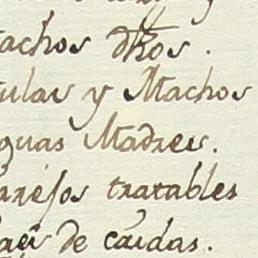 achos dhos.
ulas y Machos
guas Madres.
arejos tratables
de caidas.